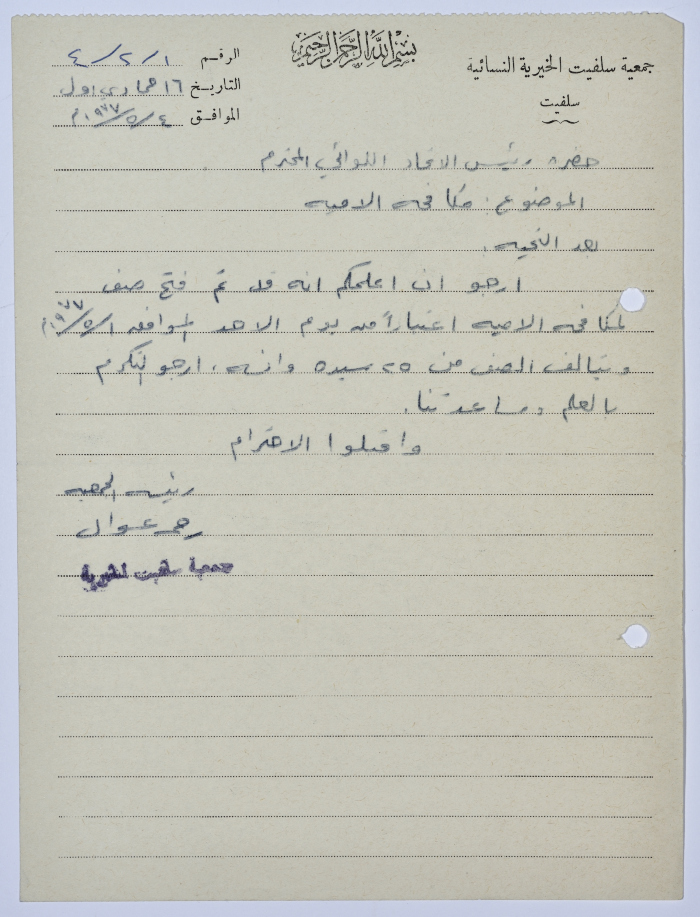 بسم الله الرحمن الرحيم
جمعية سلفيت الخيرية النسائية
سلفيت
الرقم ٤/٢/١
التاريخ ١٦ جمادي اول
الموافق ٤/٥/٩٧٧ م
حضرة رئيس الاتحاد اللوائي المحترم
الموضوع: مكافحه الاميه
بعد التحيه،
ارجو ان اعلمكم انه قد تم فتح صف
لمكافحه الاميه اعتباراً من يوم الاحد الموافق ١/٥/٩٧٧ م
ويتألف الصف من ٢٥ سيده وانسه، ارجو التكرم
بالعلم ومساعدتنا.
واقبلوا الاحترام
رئيسه الجمعيه
جمعية سلفيت الخيرية